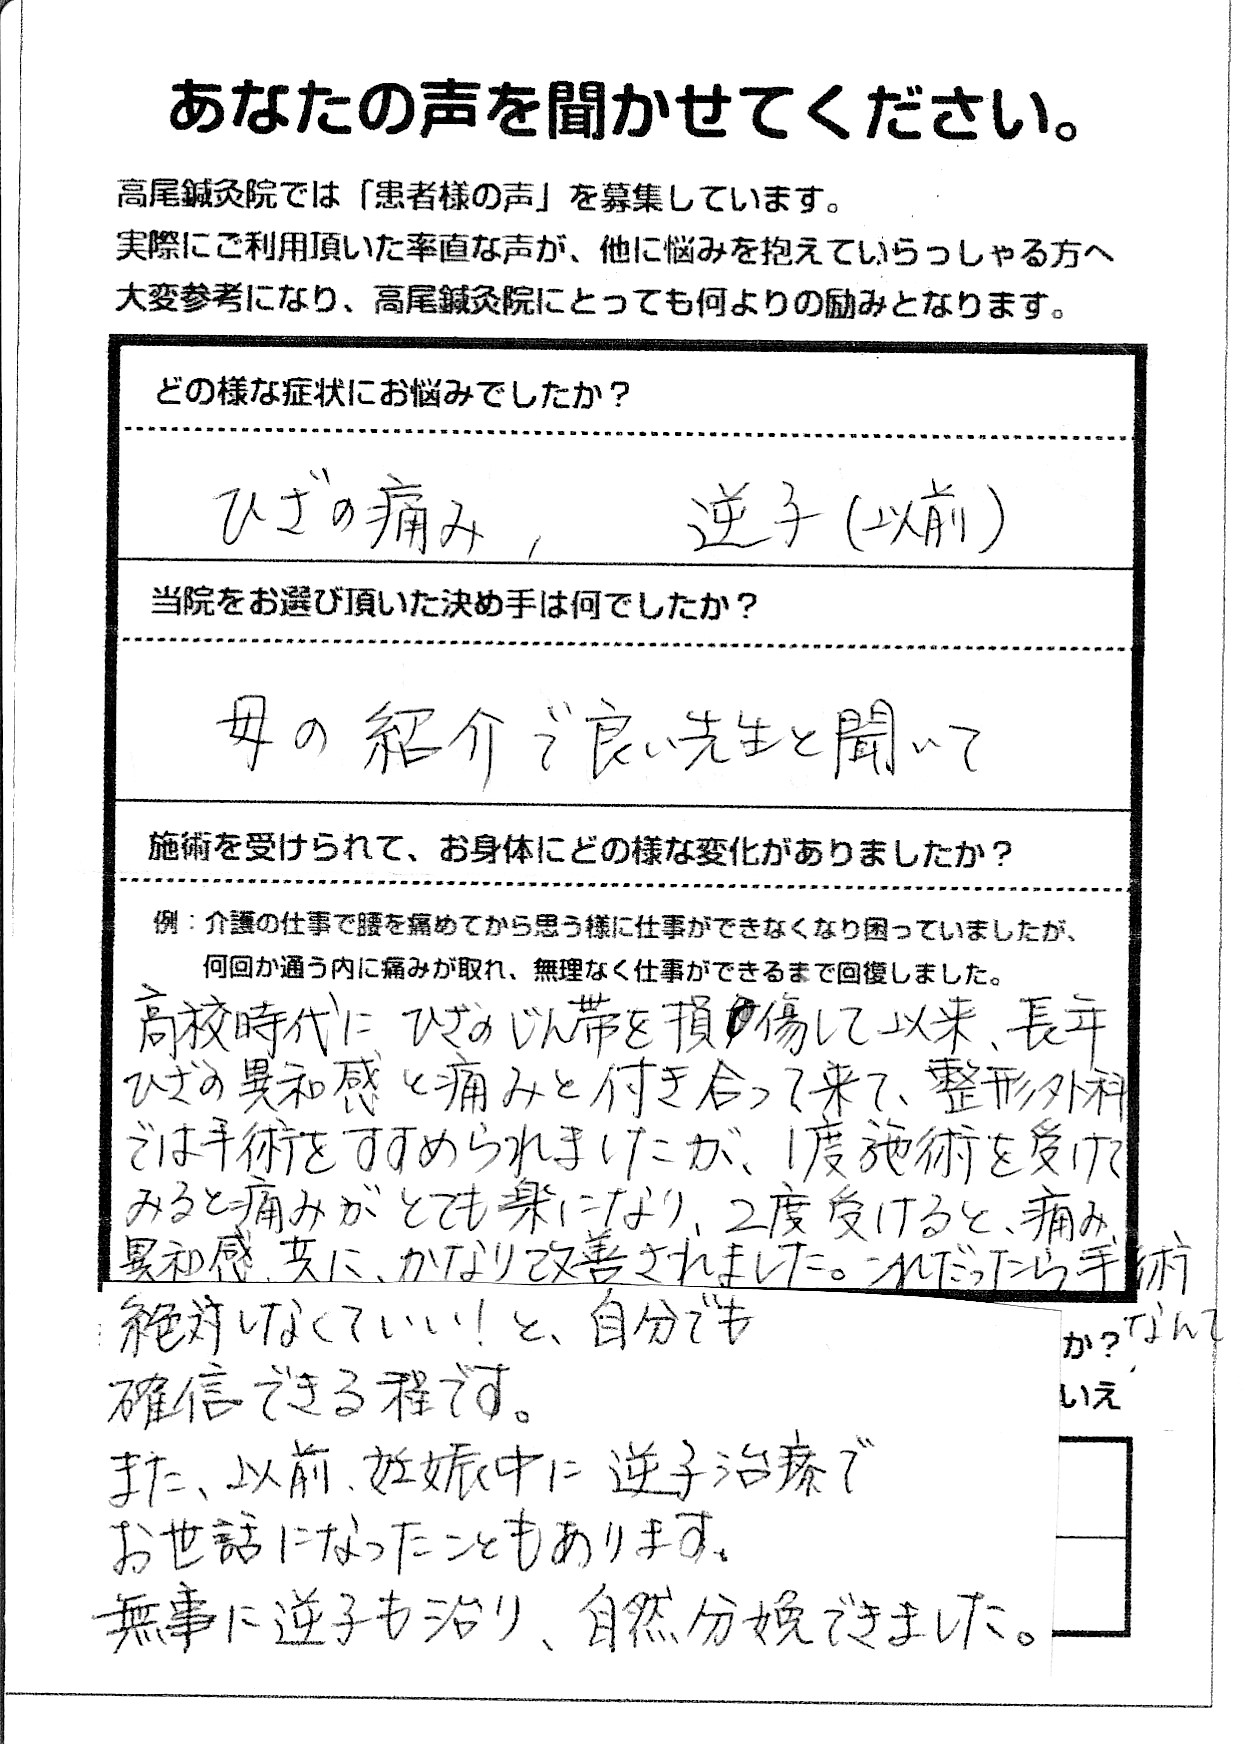 あなたの声を聞かせてください。
高尾鍼灸院では「患者様の声」を募集しています。
実際にご利用頂いた率直な声が、他に悩みを抱えていらっしゃる方へ
大変参考になり、高尾鍼灸院にとっても何よりの励みとなります。
どの様な症状にお悩みでしたか？
ひざの痛み, 逆子(以前)
当院をお選び頂いた決め手は何でしたか？
母の紹介で良い先生と聞いて
施術を受けられて、お身体にどの様な変化がありましたか？
例：介護の仕事で腰を痛めてから思う様に仕事ができなくなり困っていましたが、
何回か通う内に痛みが取れ、無理なく仕事ができるまで回復しました。
高校時代に ひざのじん帯を損傷して以来、長年
ひざの異和感と痛みと付き合って来て、整形外科
では手術をすすめられましたが、1度施術を受けて
みると痛みがとても楽になり、2度受けると、痛み、
異和感、共に、かなり改善されました。これだったら手術
なんて
絶対しなくていい！と、自分でも
か？
確信できる程です。
いえ
また、以前、妊娠中に逆子治療で
お世話になったこともあります。
無事に逆子も治り、自然分娩できました。